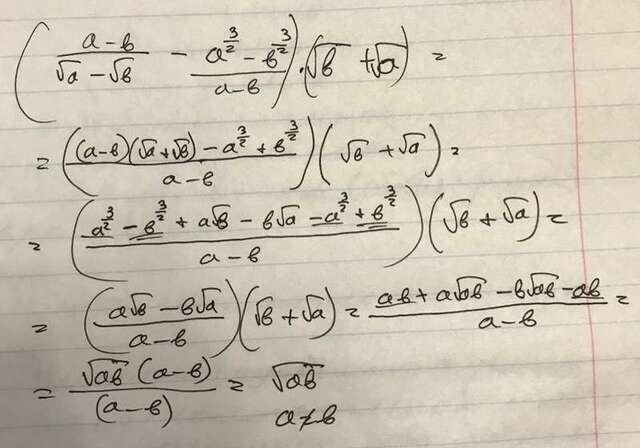 ((a-b)/(√a-√b) - (a^(3/2)-b^(3/2))/(a-b))·(√b+√a) =
= (((a-b)(√a+√b)-a^(3/2)+b^(3/2))/(a-b))(√b+√a) =
= ((a^(3/2)-b^(3/2)+a√b-b√a-a^(3/2)+b^(3/2))/(a-b))(√b+√a) =
= ((a√b-b√a)/(a-b))(√b+√a) = (ab+a√ab-b√ab-ab)/(a-b) =
= (√ab(a-b))/((a-b)) = √ab
a≠b